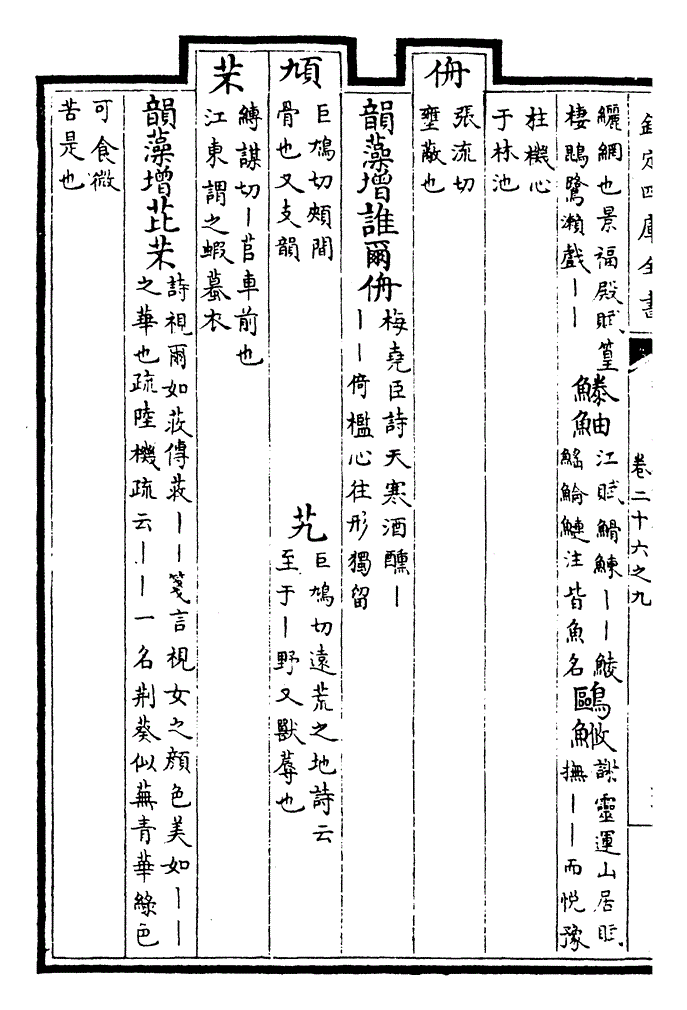 欽定四庫全書
卷二十六之九
纚網也景福殿賦篁
棲鵾鷺瀨戲丨丨
鰧鮋
江賦䱻鰊丨丨鯪
鰩鯩鰱注皆魚名
鷗鯈
謝靈運山居賦
撫丨丨而悦豫
杜機心
于林池
侜
張流切
壅蔽也
韻藻增誰爾侜
梅堯臣詩天寒酒醺丨
丨丨倚檻心往形獨留
頄
巨鳩切頰間
骨也又支韻
艽
巨鳩切遠荒之地詩云
至于丨野又獸蓐也
芣
縛謀切丨苢車前也
江東謂之蝦蟇衣
韻藻增芘芣
詩視爾如荍傳荍丨丨箋言視女之顔色美如丨丨
之華也疏陸機疏云丨丨一名荆葵似蕪青華綠色
可食微
苦是也